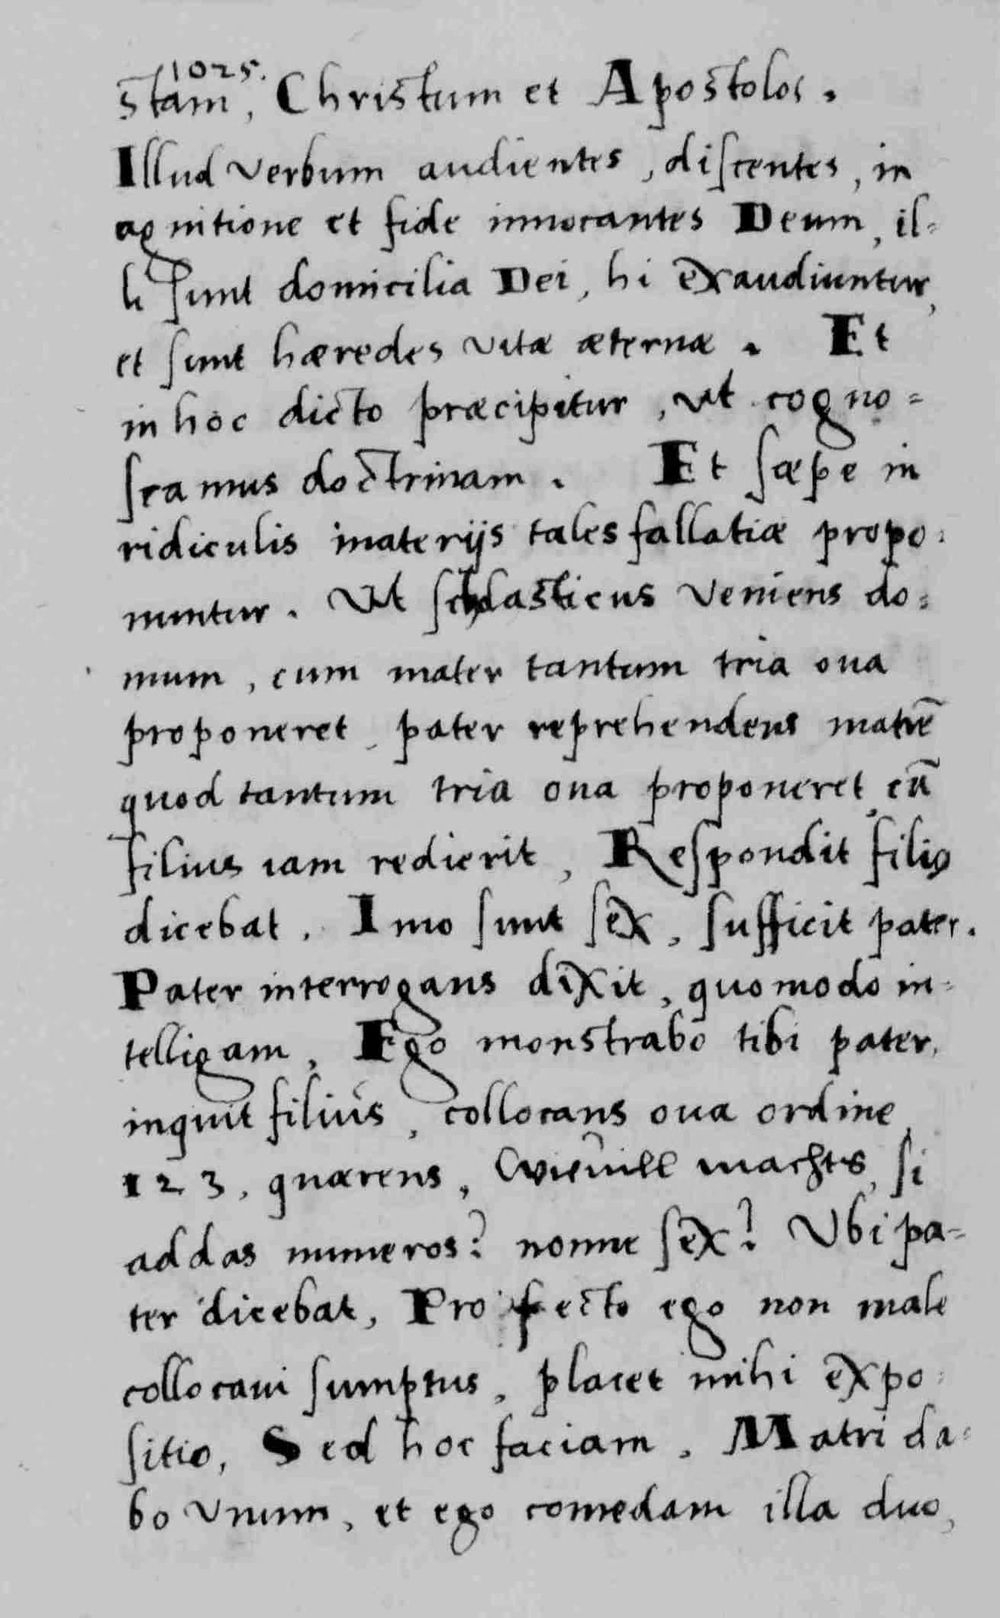 1025.
stam, Christum et Apostolos.
Illud verbum audientes, discentes, in
agnitione et fide innocantes Deum, il=
li sunt domicilia Dei, hi exaudiuntur,
et sunt hæredes vitæ æternæ. Et
in hoc dicto præcipitur, ut cogno=
scamus doctrinam. Et sæpe in
ridiculis materijs tales fallatiæ propo=
nuntur. Ut scholasticus veniens do=
mum, cum mater tantum tria oua
proponeret, pater reprehendens matrē
quod tantum tria oua proponeret, cū
filius iam redierit, Respondit filiꝰ
dicebat. Imo sunt sex, sufficit pater.
Pater interrogans dixit, quomodo in=
telligam, Ego monstrabo tibi pater,
inquit filius, collocans oua ordine,
1 2 3, quærens, Wieuill machts, si
addas numeros? nonne sex? Ubi pa=
ter dicebat, Profecto ego non male
collocaui sumptus, placet mihi expo=
sitio, Sed hoc faciam. Matri da=
bo unum, et ego comedam illa duo,